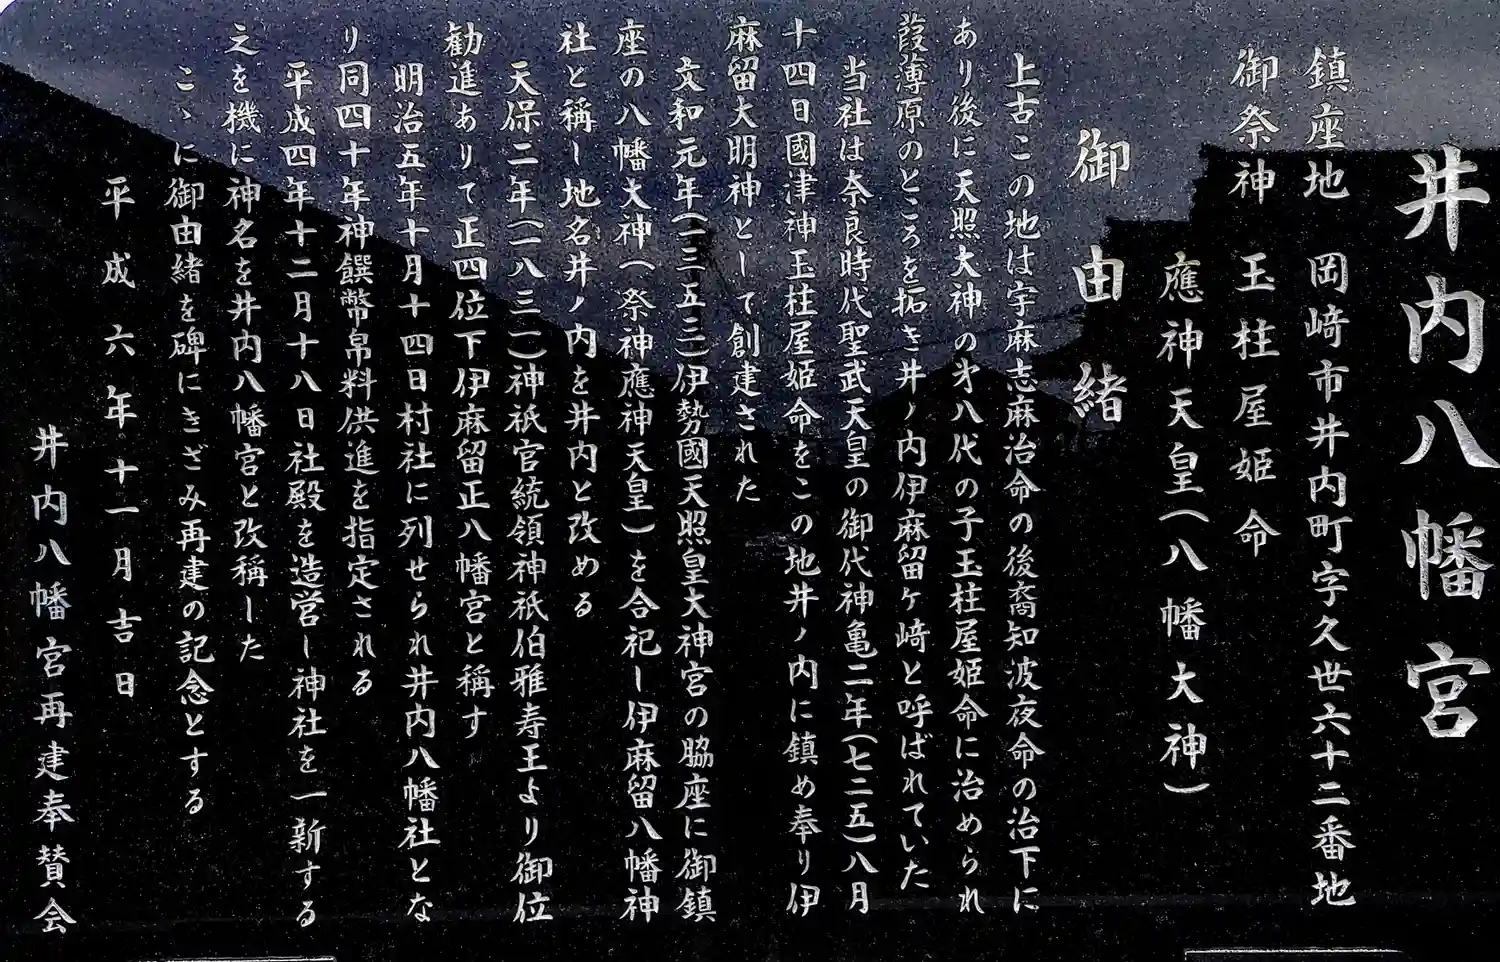 井内八幡宮
鎮座地　岡﨑市井内町字久世六十二番地
御祭神　玉柱屋姫命
應神天皇（八幡大神）
御由緒
上古この地は宇麻志麻治命の後裔知波夜命の治下に
あり後に天照大神の㐧八代の子玉柱屋姫命に治められ
葭薄原のところを拓き井ノ内伊麻留ヶ﨑と呼ばれていた
当社は奈良時代聖武天皇の御代神亀二年（七二五）八月
十四日國津神玉柱屋姫命をこの地井ノ内に鎮め奉り伊
麻留大明神として創建された
文和元年（一三五二）伊勢國天照皇大神宮の脇座に御鎮
座の八幡大神（祭神應神天皇）を合祀し伊麻留八幡神
社と稱し地名井ノ内を井内と改める
天保二年（一八三一）神祇官統領神祇伯雅寿王より御位
勧進ありて正四位下伊麻留正八幡宮と稱す
明治五年十月十四日村社に列せられ井内八幡社とな
り同四十年神饌幣帛料供進を指定される
平成四年十二月十八日社殿を造営し神社を一新する
之を機に神名を井内八幡宮と改稱した
こゝに御由緒を碑にきざみ再建の記念とする
平成六年十一月吉日
井内八幡宮再建奉賛会